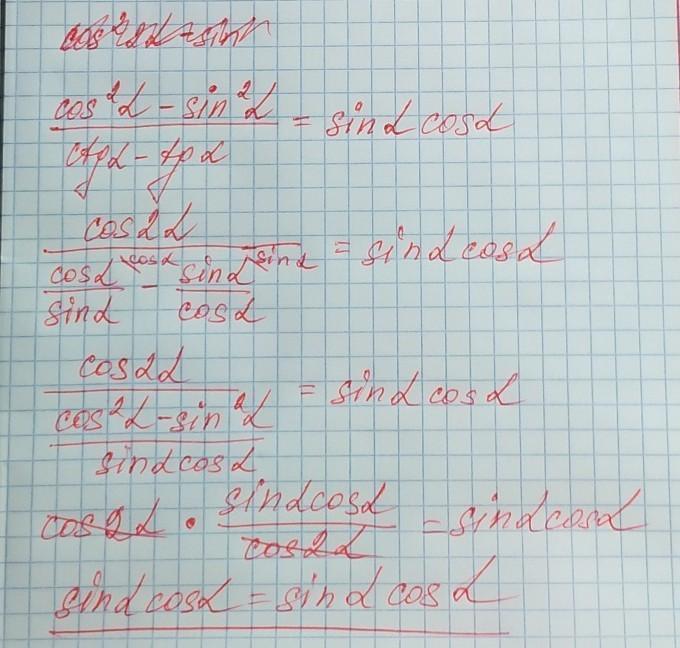 cos²α - sin²α / ctgα - tgα = sinα cosα
cos2α / (cosα^\cosα / sinα - sinα^\sinα / cosα) = sinα cosα
cos2α / (cos²α - sin²α / sinα cosα) = sinα cosα
cos2α · sinα cosα / cos2α = sinα cosα
sinα cosα = sinα cosα